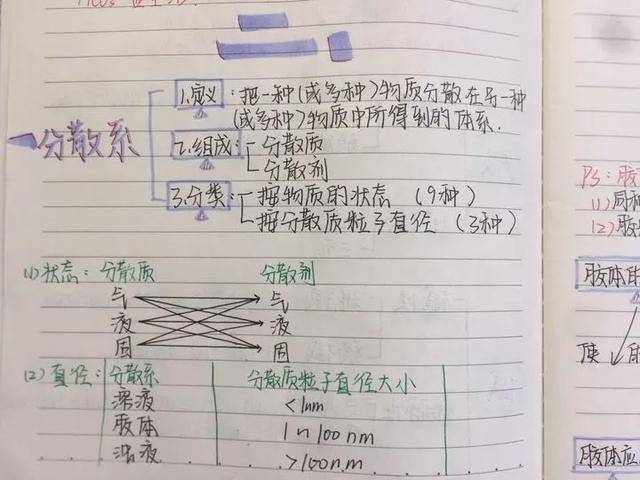 一分散系
1.定义：把一种(或多种)物质分散在另一种
(或多种)物质中所得到的体系.
2.组成：分散质
分散剂
3.分类：按物质的状态（9种）
按分散质粒子直径（3种）
(1)状态：分散质 分散剂
气 气
液 液
固 固
(2)直径：分散系 分散质粒子直径大小
溶液 <1nm
胶体 1~100nm
浊液 >100nm
PS：胶
(1)同种
(2)胶
胶体的
胶体应